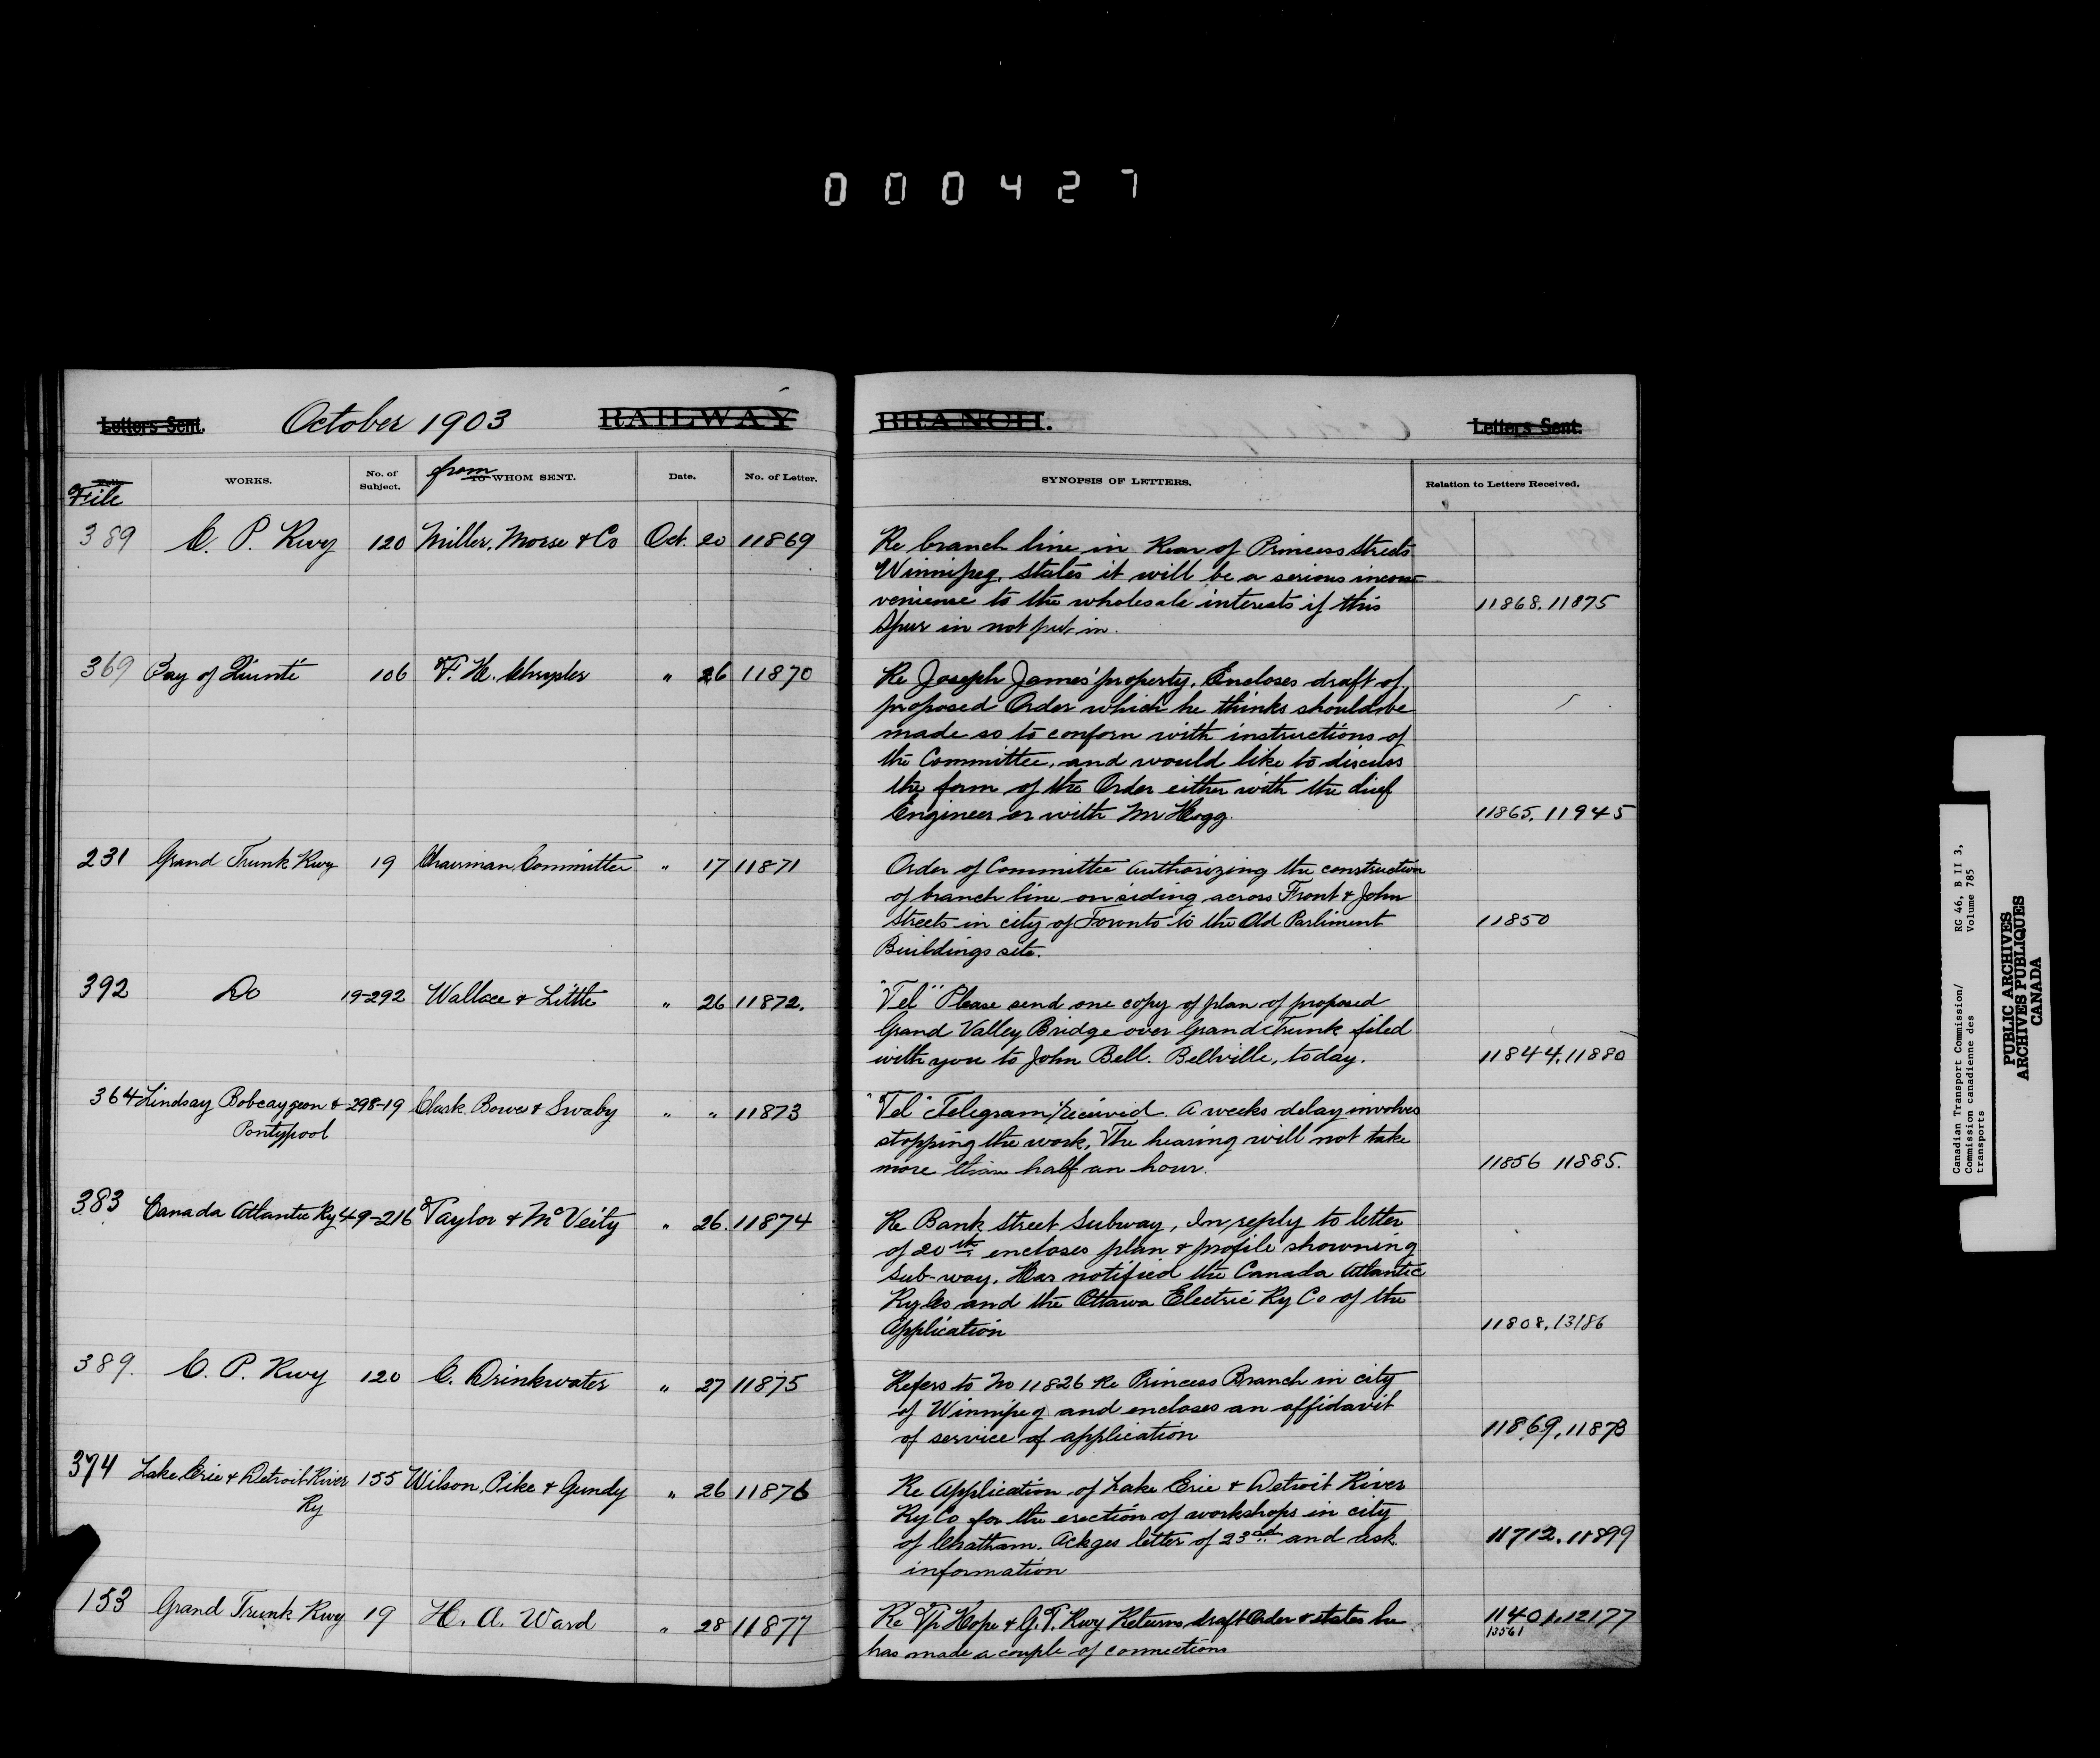 000427
Letters Sent. October 1903 RAILWAY BRANCH. Letters Sent.
File WORKS. No. of Subject. from TO WHOM SENT. Date. No. of Letter. SYNOPSIS OF LETTERS. Relation to Letters Received.
389 C. P. Rwy 120 Miller, Morse & Co Oct. 20 11869 Re branch line in Rear of Princess Streets
Winnipeg, states it will be a serious incon-
venience to the wholesale interests if this 11868. 11875
Spur in not put in.
369 Bay of Quinté 106 F. H. Chrysler " 26 11870 Re Joseph James' property. Encloses draft of
proposed Order which he thinks should be
made so to conform with instructions of
the Committee, and would like to discuss
the form of the Order either with the chief
Engineer or with Mr Hogg. 11865. 11945
231 Grand Trunk Rwy 19 Chairman Committee " 17 11871 Order of Committee authorizing the construction
of branch line on siding across Front & John
Streets in city of Toronto to the Old Parliment 11850
Buildings site.
392 Do 19-292 Wallace & Little " 26 11872. "Tel" Please send one copy of plan of proposed
Grand Valley Bridge over Grand Trunk filed
with you to John Bell. Bellville, today. 11844, 11880
364 Lindsay Bobcaygeon & 298-19 Clark. Bowes & Swaby " " 11873 "Tel" Telegram received. A weeks delay involves
Pontypool stopping the work. The hearing will not take
more than half an hour. 11856 11885.
383 Canada Atlantic Ry 49-216 Taylor & McVeity " 26. 11874 Re Bank Street Subway, In reply to letter
of 20th encloses plan & profile showning
Sub-way. Has notified the Canada Atlantic
Ry Co and the Ottawa Electric Ry Co of the
Application 11808, 13186
389. C. P. Rwy 120 C. Drinkwater " 27 11875 Refers to No 11826 Re Princess Branch in city
of Winnipeg and encloses an affidavit
of service of application 11869, 11878
374 Lake Erie & Detroit River 155 Wilson, Pike & Gundy " 26 11876 Re Application of Lake Erie & Detroit River
Ry Ry Co for the erection of workshops in city
of Chatham. Ackges letter of 23rd and ask 11712. 11899
information
153 Grand Trunk Rwy 19 H. A. Ward " 28 11877 Re Tp Hope & G. T. Rwy Returns draft Order & states he 11401, 12177
13561
has made a couple of connections
Canadian Transport Commission/ RG 46, B II 3,
Commission canadienne des Volume 785
transports
PUBLIC ARCHIVES
ARCHIVES PUBLIQUES
CANADA